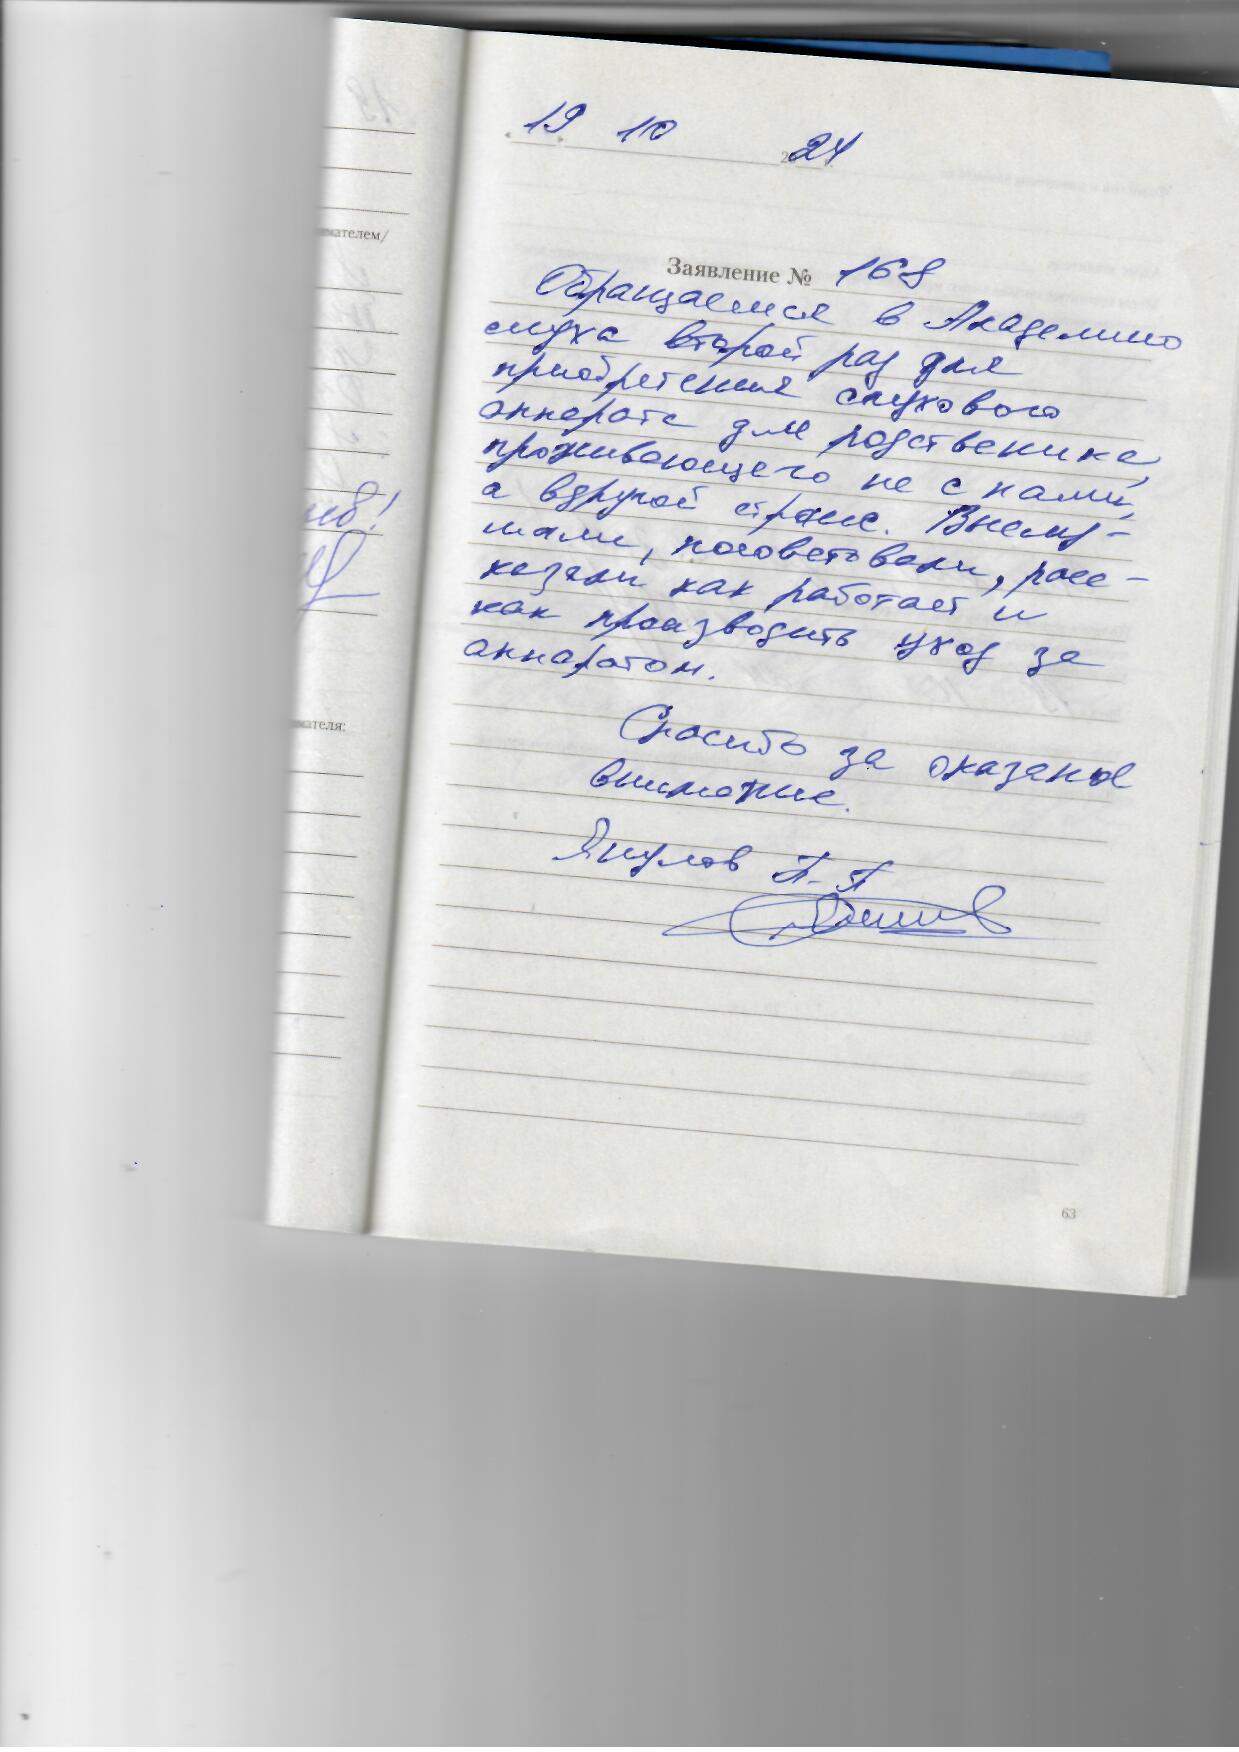 19 10 2024
Заявление № 168
Обращаемся в Академию
слуха второй раз для
приобретения слухового
аппарата для родственика,
проживающего не с нами,
а в другой стране. Внемлу-
шали, посоветовали, расс-
казали как работает и
как производить уход за
аппаратом.
Спасибо за оказаное
внимание.
Якулов П.П
63
имателем/
мателя: